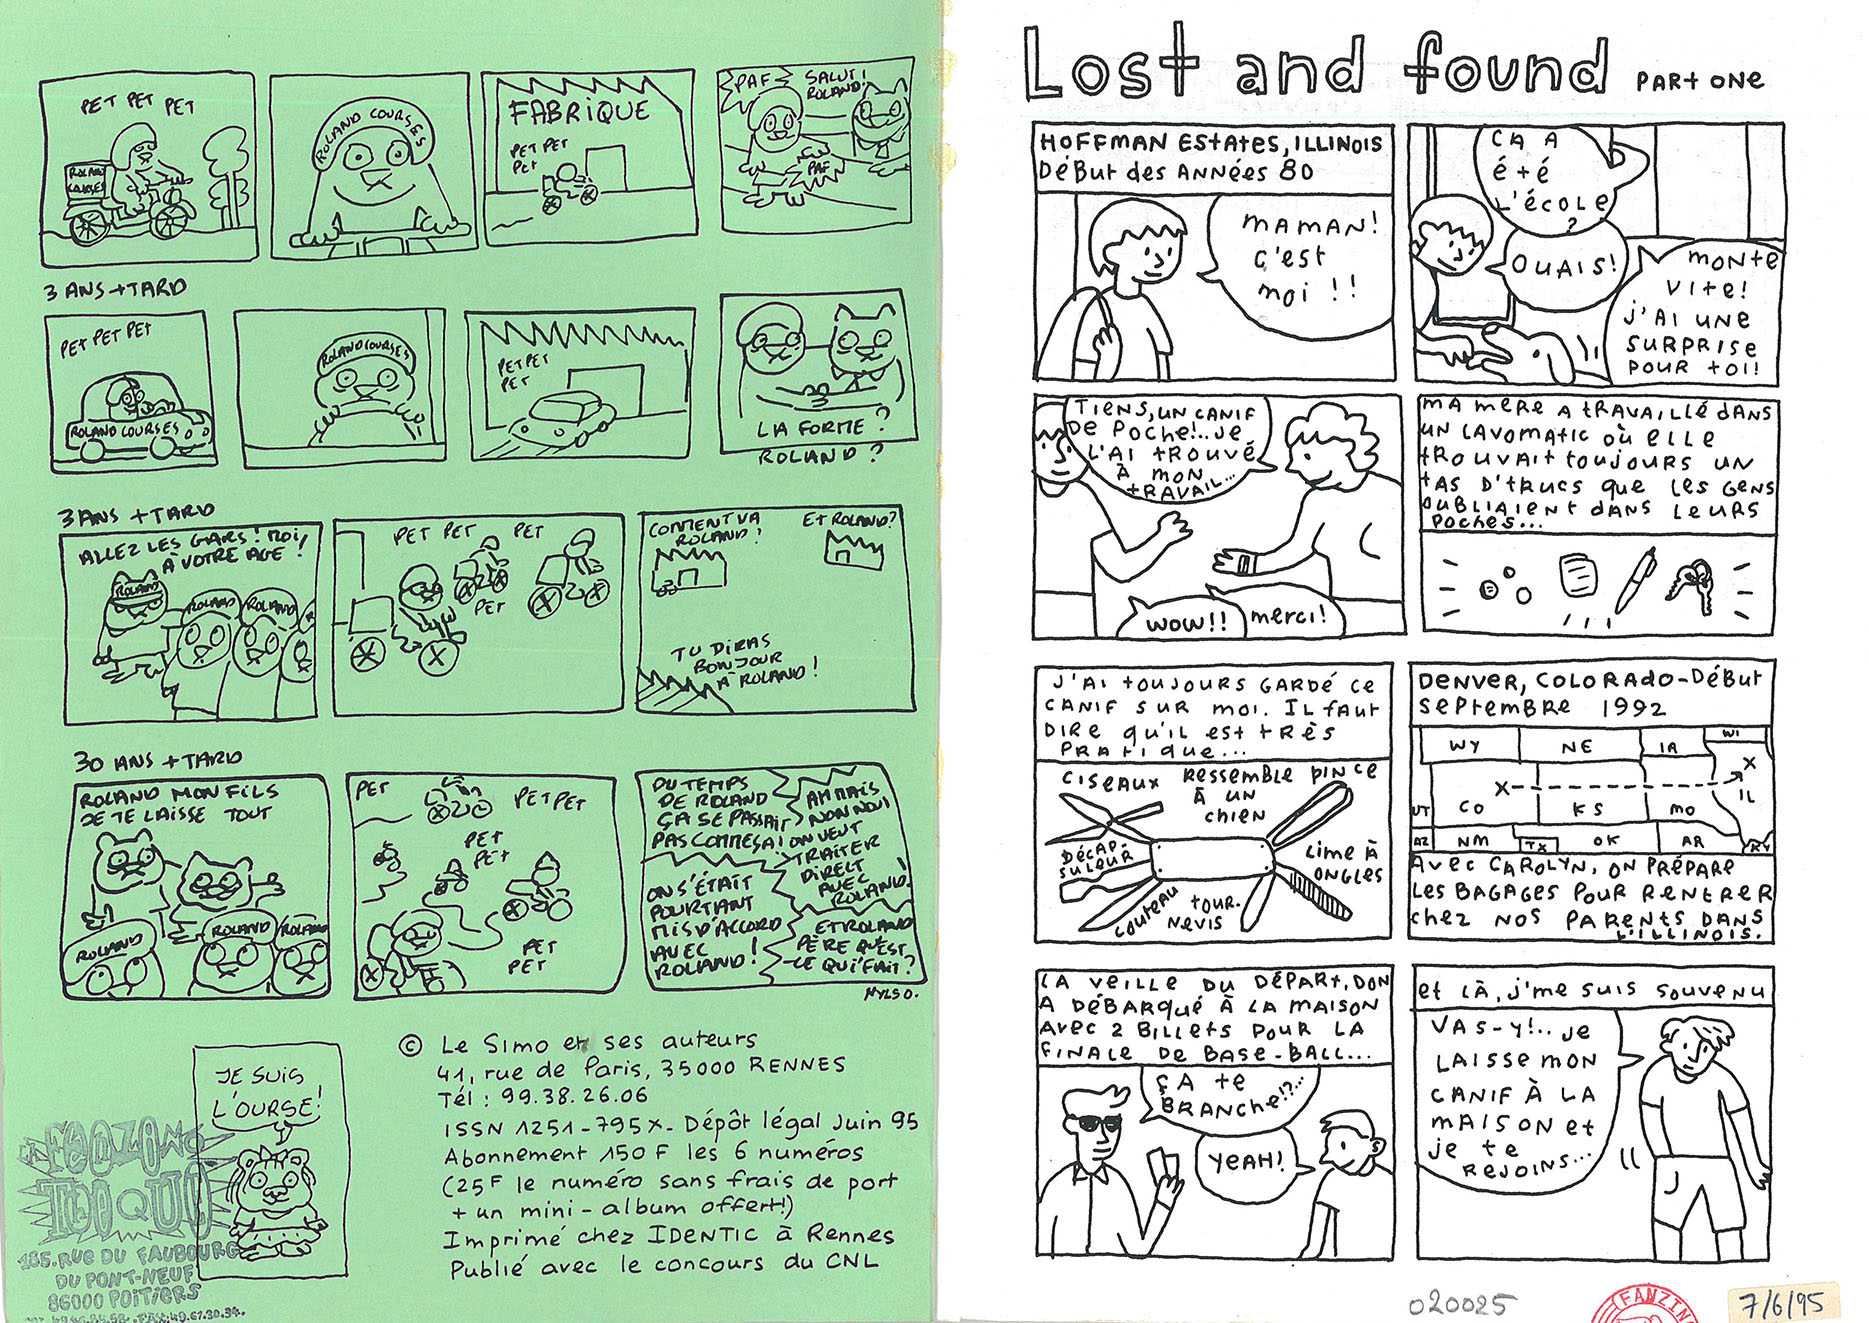 PET PET PET
ROLAND
COURSES
ROLAND COURSES
FABRIQUE
PET PET
PET
PAF
SALUT!
ROLAND!
PAF
3 ANS + TARD
PET PET PET
ROLAND COURSES
ROLAND COURSES
PET PET
PET
LA FORME ?
ROLAND ?
3 ANS + TARD
ALLEZ LES GARS! MOI,
À VOTRE AGE!
ROLAND
ROLAND
ROLAND
PET PET PET
PET
COMMENT VA
ROLAND?
ET ROLAND?
TU DIRAS
BONJOUR
À ROLAND!
30 ANS + TARD
ROLAND MON FILS
JE TE LAISSE TOUT
ROLAND
ROLAND
ROLAND
PET
PET PET
PET
PET
PET
PET
DU TEMPS
DE ROLAND
ÇA SE PASSAIT
PAS COMME ÇA!
AH MAIS
NON NOUS
ON VEUT
TRAITER
DIRECT
AVEC
ROLAND!
ON S'ÉTAIT
POURTANT
MIS D'ACCORD
AVEC
ROLAND!
ET ROLAND
PÈRE QU'EST-
-CE QU'I'FAIT?
MYLSO.
JE SUIS
L'OURSE!
© Le Simo et ses auteurs
41, rue de Paris, 35000 RENNES
Tél : 99.38.26.06
ISSN 1251-795X - Dépôt légal Juin 95
Abonnement 150F les 6 numéros
(25F le numéro sans frais de port
+ un mini-album offert!)
Imprimé chez IDENTIC à Rennes
Publié avec le concours du CNL
LA FANZINO
THOQUE
185, RUE DU FAUBOURG
DU PONT-NEUF
86000 POITIERS
Lost and found PART ONE
HOFFMAN ESTATES, ILLINOIS
DÉBUT des ANNÉES 80
MAMAN!
C'est
moi !!
ÇA A
été
L'école
?
OUAIS!
MONTE
VITE!
J'AI UNE
SURPRISE
POUR TOI!
TIENS, UN CANIF
DE POCHE!.. Je
L'AI TROUVÉ
À MON
TRAVAIL...
WOW!!
merci!
MA MÈRE A TRAVAILLÉ DANS
UN LAVOMATIC OÙ ELLE
TROUVAIT TOUJOURS UN
TAS D'TRUCS QUE LES GENS
OUBLIAIENT DANS LEURS
POCHES...
J'AI TOUJOURS GARDÉ CE
CANIF SUR MOI. IL FAUT
DIRE QU'IL EST TRÈS
PRATIQUE...
CISEAUX
RESSEMBLE
À UN
CHIEN
PINCE
DÉCAP-
SULEUR
LIME À
ONGLES
COUTEAU
TOUR-
NEVIS
DENVER, COLORADO - DÉBUT
SEPTEMBRE 1992
WY
NE
IA
WI
X
X
IL
UT
CO
KS
MO
AZ
NM
TX
OK
AR
KY
AVEC CAROLYN, ON PRÉPARE
LES BAGAGES POUR RENTRER
CHEZ NOS PARENTS DANS
L'ILLINOIS.
LA VEILLE DU DÉPART, DON
A DÉBARQUÉ À LA MAISON
AVEC 2 BILLETS POUR LA
FINALE DE BASE-BALL...
ÇA te
BRANCHE!?...
YEAH!
et LÀ, J'me SUIS SOUVENU
VAS-Y!.. Je
LAISSE MON
CANIF À LA
MAISON et
je te
REJOINS...
020025
FANZINO
7/6/95